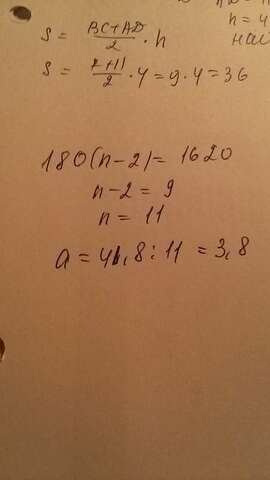 h = 4
S = BC+AD/2 · h
S = 7+11/2 · 4 = 9 · 4 = 36
180(n-2) = 1620
n-2 = 9
n = 11
a = 41,8 : 11 = 3,8